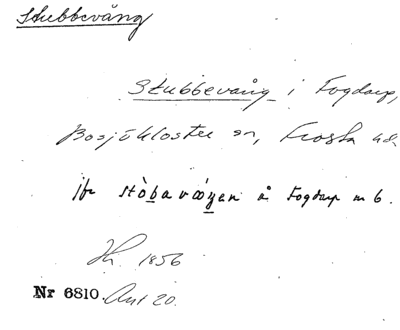 Stubbevång
Stubbevång i Fogdarp,
Bosjökloster sn, Frosta hd.
jfr stòbavæ̀ŋen å Fogdarp nr 6.
1856
Nr 6810. Ant 20.